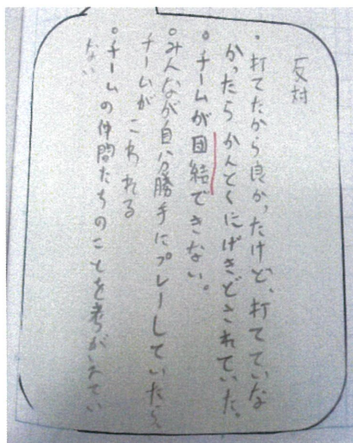 反対
・打てたから良かったけど、打てていな
かったら かんとくにげきどされていた。
・チームが団結できない。
・みんなが自分勝手にプレーしていたら、
チームが こわれる
・チームの仲間たちのことを考がえてい
ない